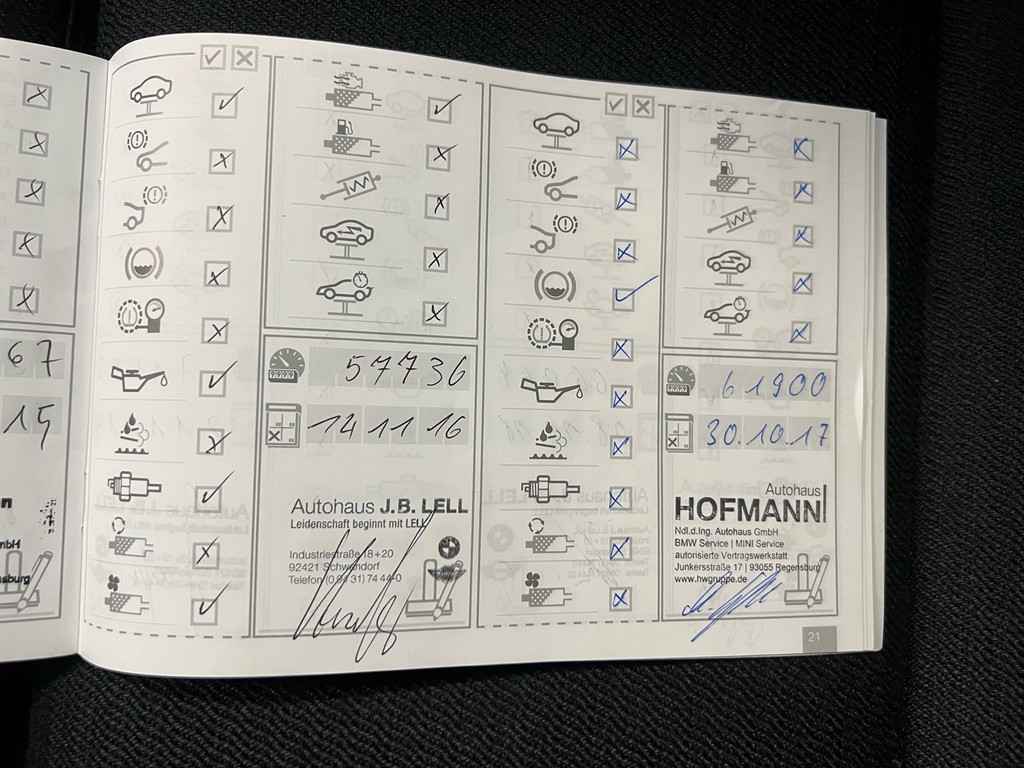 67
15
57736
14 11 16
Autohaus J.B. LELL
Leidenschaft beginnt mit LELL
Industriestraße 18+20
92421 Schwandorf
Telefon (0 94 31) 74 44-0
61900
30.10.17
Autohaus
HOFMANN
Ndl.d.Ing. Autohaus GmbH
BMW Service | MINI Service
autorisierte Vertragswerkstatt
Junkersstraße 17 | 93055 Regensburg
www.hwgruppe.de
21